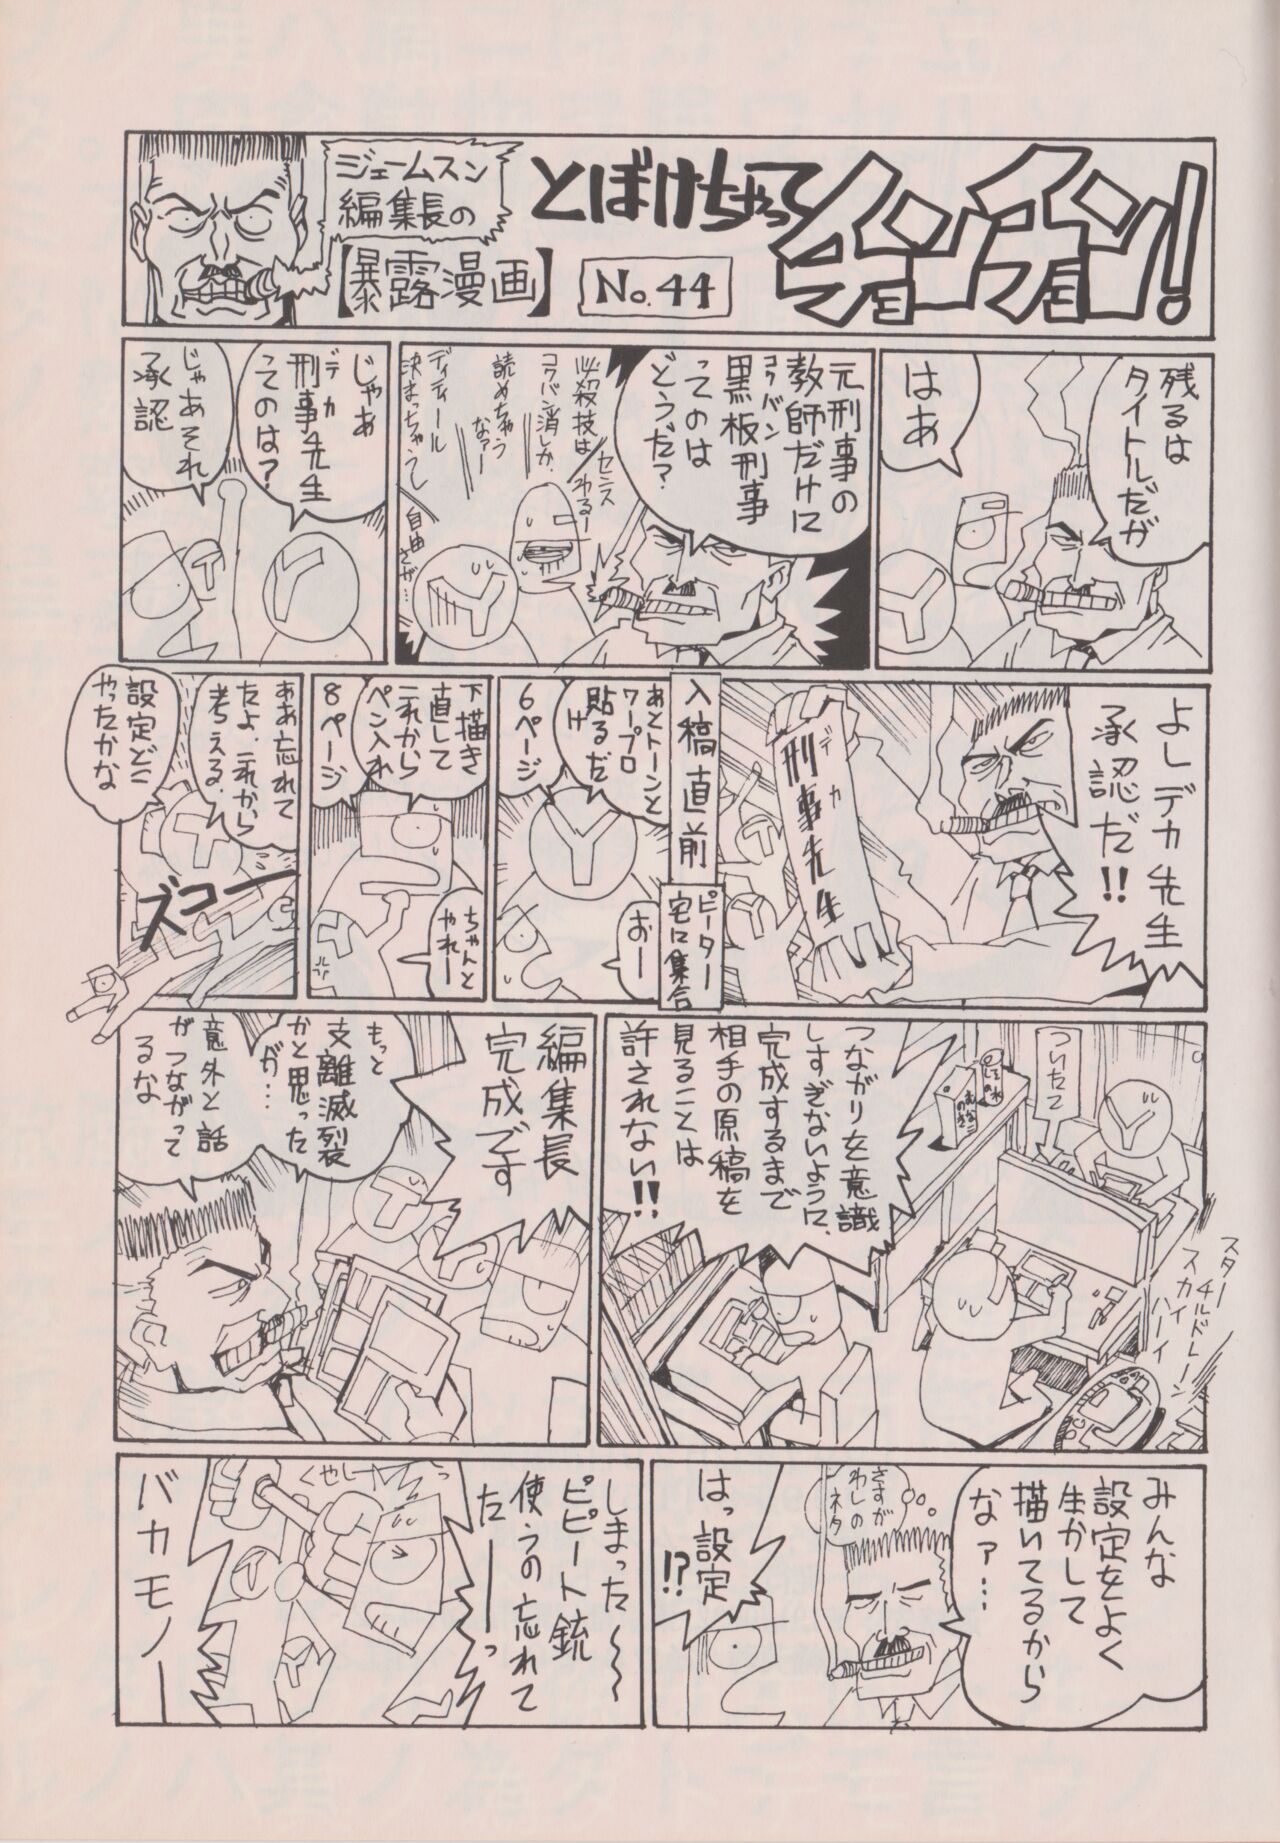 ジェームスン
編集長の
【暴露漫画】
とぼけちゃって
チョンチョン!
No.44
残るは
タイトルだが
はあ
元刑事の
教師だけに
黒板刑事
コクバン
ってのは
どうだ?
センス
わるー
必殺技は
コクバン消しか
読めちゃう
なァー
ディティール
決まっちゃうし
自由
さが…
じゃあ
刑事先生
デカ
ってのは?
じゃあそれ
承認
よしデカ先生
承認だ!!
刑事先生
デカ
入稿直前
ピーター
宅に集合
あとトーンと
ワープロ
貼るだ
け
6ページ
おー
下描き
直して
これから
ペン入れ
8ページ
ちゃんと
やれー
ああ忘れて
たよ、これから
考える。
設定どこ
やったかな
ズコーー
つながりを意識
しすぎないように、
完成するまで
相手の原稿を
見ることは
許されない!!
ついたて
スター
チルドレーン
スカイ
ハーイ
編集長
完成です
もっと
支離滅裂
かと思った
が…
意外と話
がつながって
るな
みんな
設定をよく
生かして
描いてるから
なァ…
さすが
わしの
ネタ
はっ設定
!?
しまった〜〜
ピピート銃
使うの忘れて
たーーーっ
くやしーっ
バカモノー